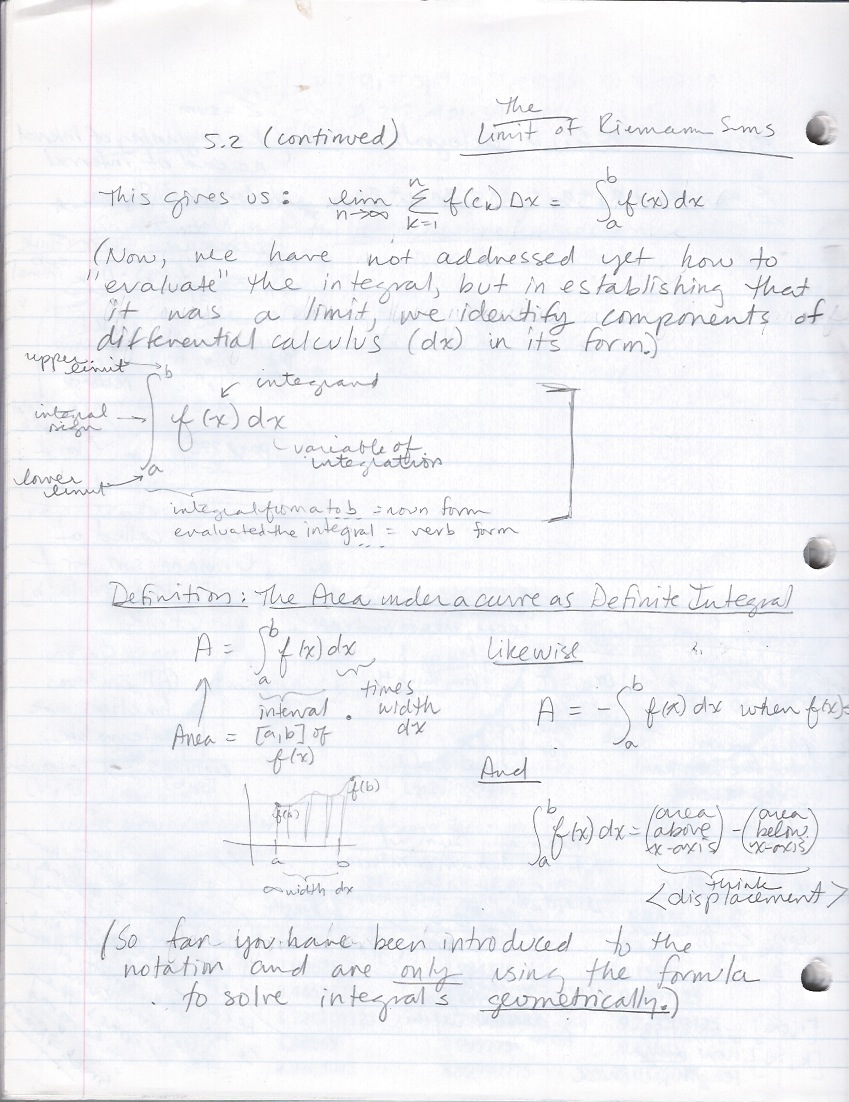 5.2 (continued) The Limit of Riemann Sums
This gives us: lim n→∞ n Σ k=1 f(ck) Δx = ∫ b a f(x) dx
(Now, we have not addressed yet how to
"evaluate" the integral, but in establishing that
it was a limit, we identify components of
differential calculus (dx) in its form.)
upper limit → b
↙ integrand
integral sign → ∫ f(x) dx
variable of
integration
lower limit → a
integral from a to b = noun form
evaluated the integral = verb form
Definition: The Area under a curve as Definite Integral
A = ∫ b a f(x) dx
↑
Area = interval [a,b] of f(x) • times width dx
Likewise
A = - ∫ b a f(x) dx when f(x) ≤
And
f(a) f(b)
a b
∞ width dx
∫ b a f(x) dx = (area above x-axis) - (area below x-axis)
think
<displacement>
(So far you have been introduced to the
notation and are only using the formula
to solve integrals geometrically.)